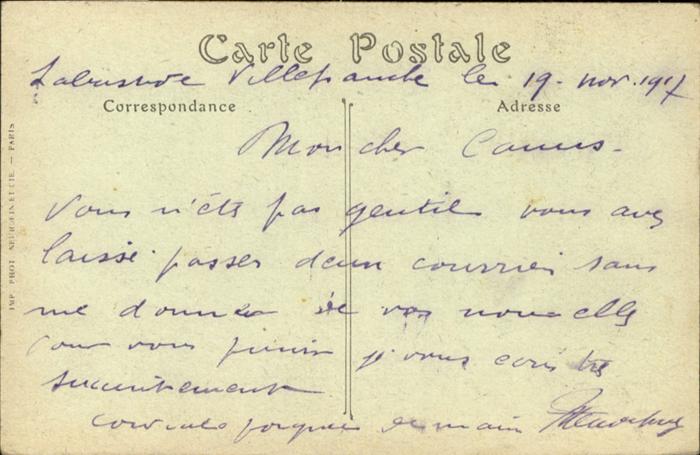 Carte Postale
Villefranche le 19 - nov. 1917
Correspondance
Adresse
Mon cher Camus -
Vous n'ête pas gentil vous avez
laissé passer deux courriers sans
me donner de vos nouvelles
pour vous punir je vous écris très
succintement
cordiale poignée de main
IMP. PHOT. NEURDEIN ET CIE. — PARIS